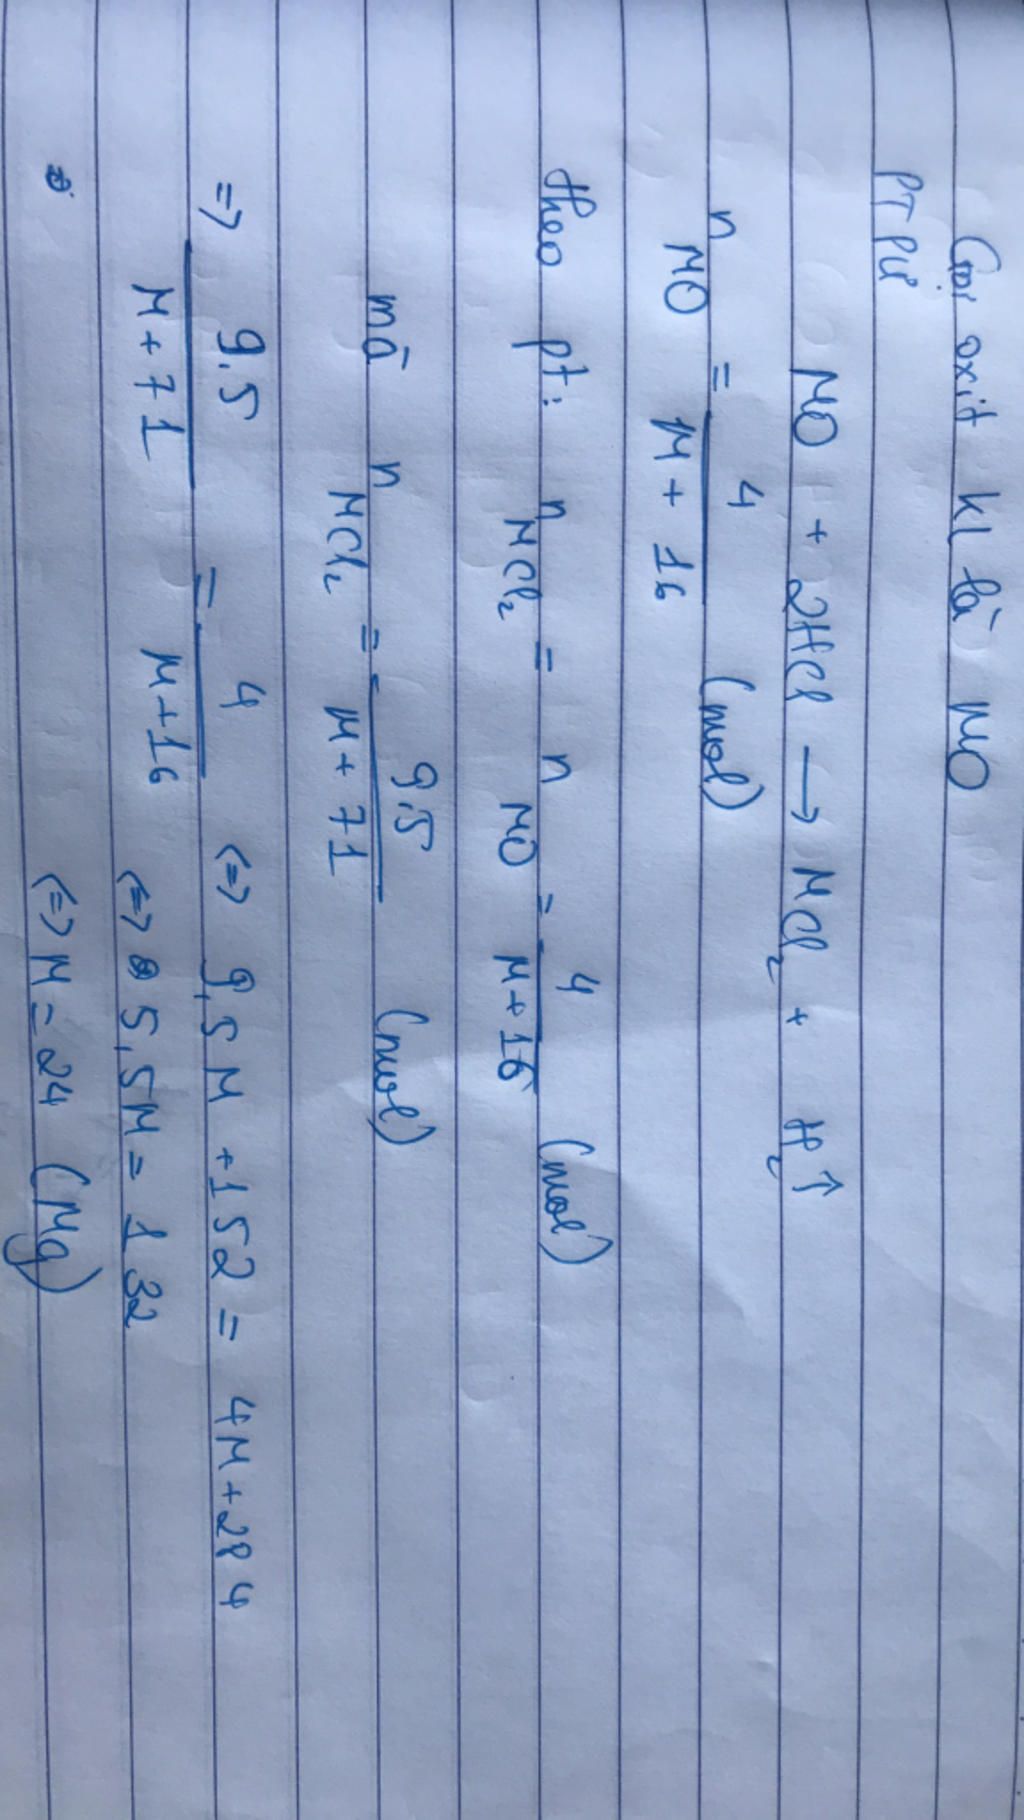 Gọi oxit kl là MO
PTPƯ
MO + 2HCl ⟶ MCl₂ + H₂↑
n MO = 4 / M + 16 (mol)
theo pt: n MCl₂ = n MO = 4 / M + 16 (mol)
mà n MCl₂ = 9.5 / M + 71 (mol)
=> 9.5 / M + 71 = 4 / M + 16 <=> 9,5M + 152 = 4M + 284
<=> 5,5M = 132
<=> M = 24 (Mg)